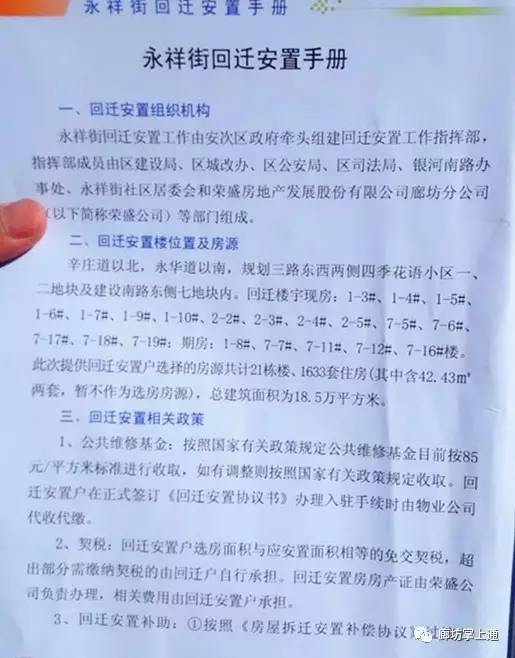 永祥街回迁安置手册
永祥街回迁安置手册
一、回迁安置组织机构
永祥街回迁安置工作由安次区政府牵头组建回迁安置工作指挥部，
指挥部成员由区建设局、区城改办、区公安局、区司法局、银河南路办
事处、永祥街社区居委会和荣盛房地产发展股份有限公司廊坊分公司
（以下简称荣盛公司）等部门组成。
二、回迁安置楼位置及房源
辛庄道以北，永华道以南，规划三路东西两侧四季花语小区一、
二地块及建设南路东侧七地块内。回迁楼宇现房：1-3#、1-4#、1-5#、
1-6#、1-7#、1-9#、1-10#、2-2#、2-3#、2-4#、2-5#、7-5#、7-6#、
7-17#、7-18#、7-19#；期房：1-8#、7-7#、7-11#、7-12#、7-16#楼。
此次提供回迁安置户选择的房源共计21栋楼、1633套住房(其中含42.43㎡
两套，暂不作为选房房源)，总建筑面积为18.5万平方米。
三、回迁安置相关政策
1、公共维修基金：按照国家有关政策规定公共维修基金目前按85
元/平方米标准进行收取，如有调整则按照国家有关政策规定收取。回
迁安置户在正式签订《回迁安置协议书》办理入驻手续时由物业公司
代收代缴。
2、契税：回迁安置户选房面积与应安置面积相等的免交契税，超
出部分需缴纳契税的由回迁户自行承担。回迁安置房房产证由荣盛公
司负责办理，相关费用由回迁安置户承担。
3、回迁安置补助：①按照《房屋拆迁安置补偿协议
廊坊掌上通